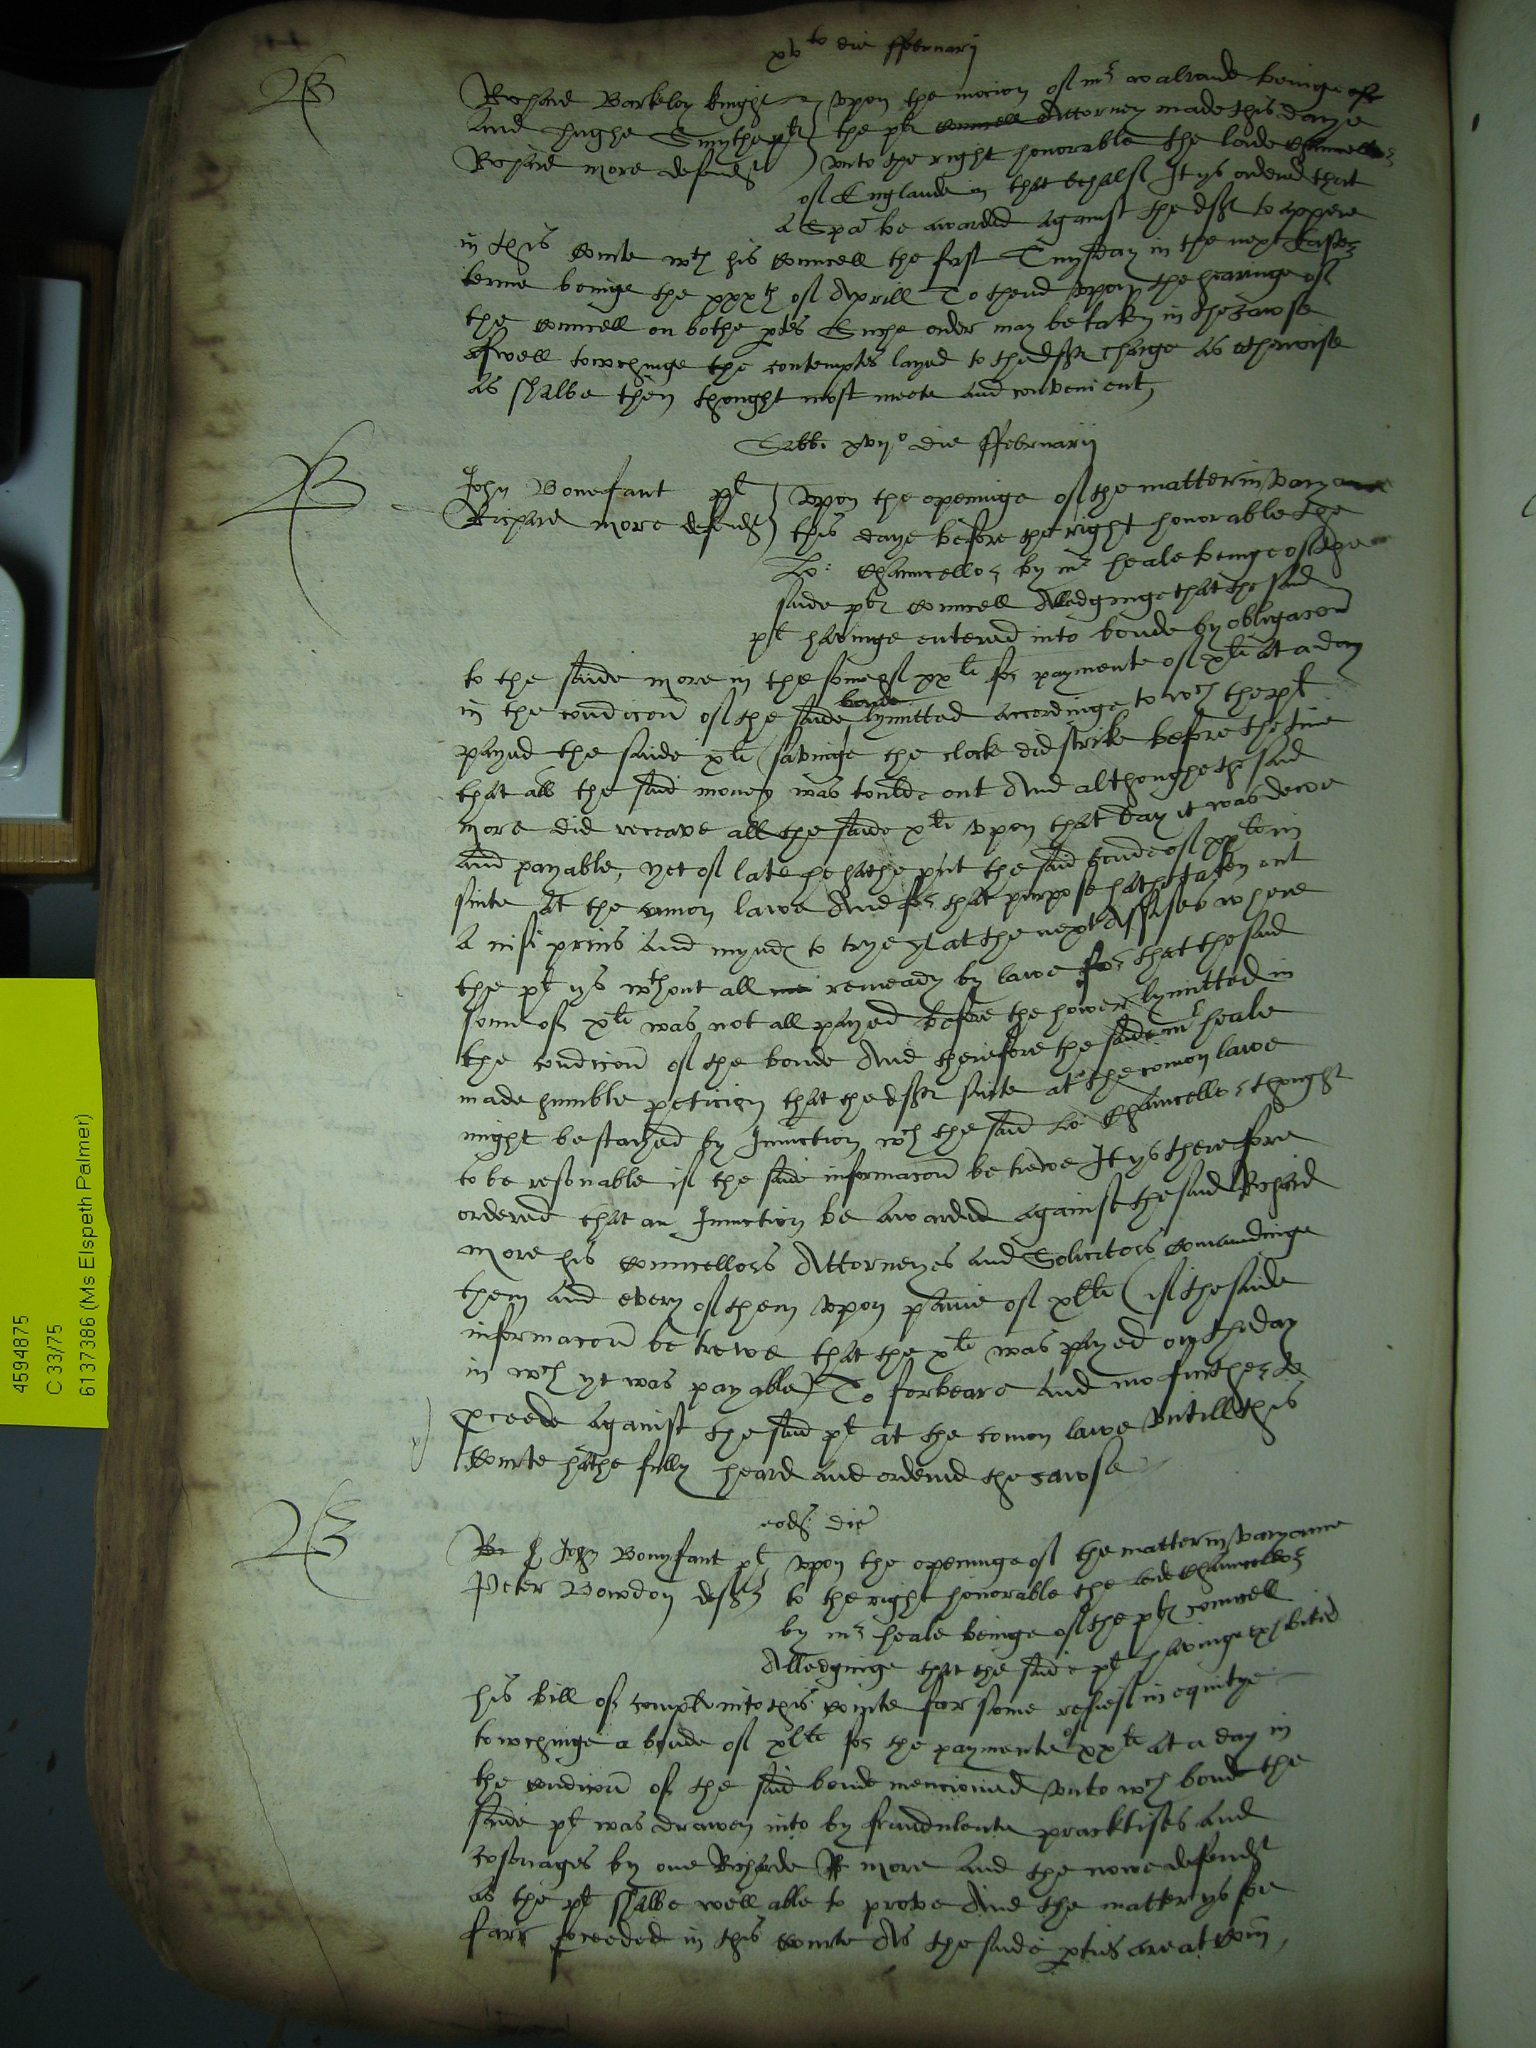 xvto die ffebruarij
Richard Barkeley knight
and Hughe Smythe plts
Richard More defendt
Upon the mocion of mr Walrande beinge of
the plts councell Attorney made this daye
unto the right honorable the lorde Chauncellor
of Englande in that behalf It ys ordered that
a Spa be awarded against the deft to appere
in this courte wth his councell the first Tuysday in the next Easter
terme beinge the xxxth of Aprill To thend upon the hearinge of
the councell on bothe ptes Suche order may be taken in the cawse
aswell towchinge the contemptes layed to the defts charge as otherwise
as shalbe then thought most meete and convenient
Sabbi xvijo die ffebruarij
John Bonefant plt
Richard More defendt
Upon the openinge of the matter in varyance
this daye before the right honorable the
Lo: Chauncellor by mr Heale beinge of the
saide plts councell Alledginge that the said
plt havinge entered into bonde by obligacon
to the saide More in the some of xxli for payment of xli at a day
in the condicon of the saide bonde lymitted accordinge to wch the plt
payed the saide xli (savinge the clock did strike before the time
that all the said money was toulde out And althoughe the said
More did receave all the saide xli upon that day it was dewe
and payable, yet of late he hathe put the said bonde of xxli in
suite at the comon lawe And for that purpose hathe taken out
a nisi prius and myndes to trye yt at the next Assises where
the plt ys wthout all remeady by lawe for that the said
some of xli was not all payed before the hower lymitted in
the condicon of the bonde And therefore the saide mr Heale
made humble peticion that the defts suite at the comon lawe
might be stayed by Iniunction wch the said Lo: Chauncellor thought
to be resonable if the saide informacon be trewe It ys therefore
ordered that an Iniunction be awarded against the said Richard
More his councellors Attorneyes and Solicitors comaundinge
them and every of them upon paine of xlli (if the saide
informacon be trewe that the xli was payed on the day
in wch yt was payable) To forbeare and no further to
pceede against the said plt at the comon lawe untill this
courte hathe fully heard and ordered the cawse
eodm die
John Bonyfant plt
Peter Bowdon deft
Upon the openinge of the matter in varyance
to the right honorable the lorde Chauncellor
by mr Heale beinge of the plts councell
Alledginge that the saide plt havinge exhibited
his bill of complt into this courte for some relief in equitye
towchinge a bonde of xlli for the payment of xxli at a day in
the condicon of the said bonde mencioned unto wch bonde the
saide plt was drawen into by fraudulente practises and
cosonages by one Richarde More and the nowe defendt
as the plt shalbe well able to prove And the matter ys soe
farr pceeded in this courte As the saide pties are at
4594875
C 33/75
61137386 (Ms Elspeth Palmer)